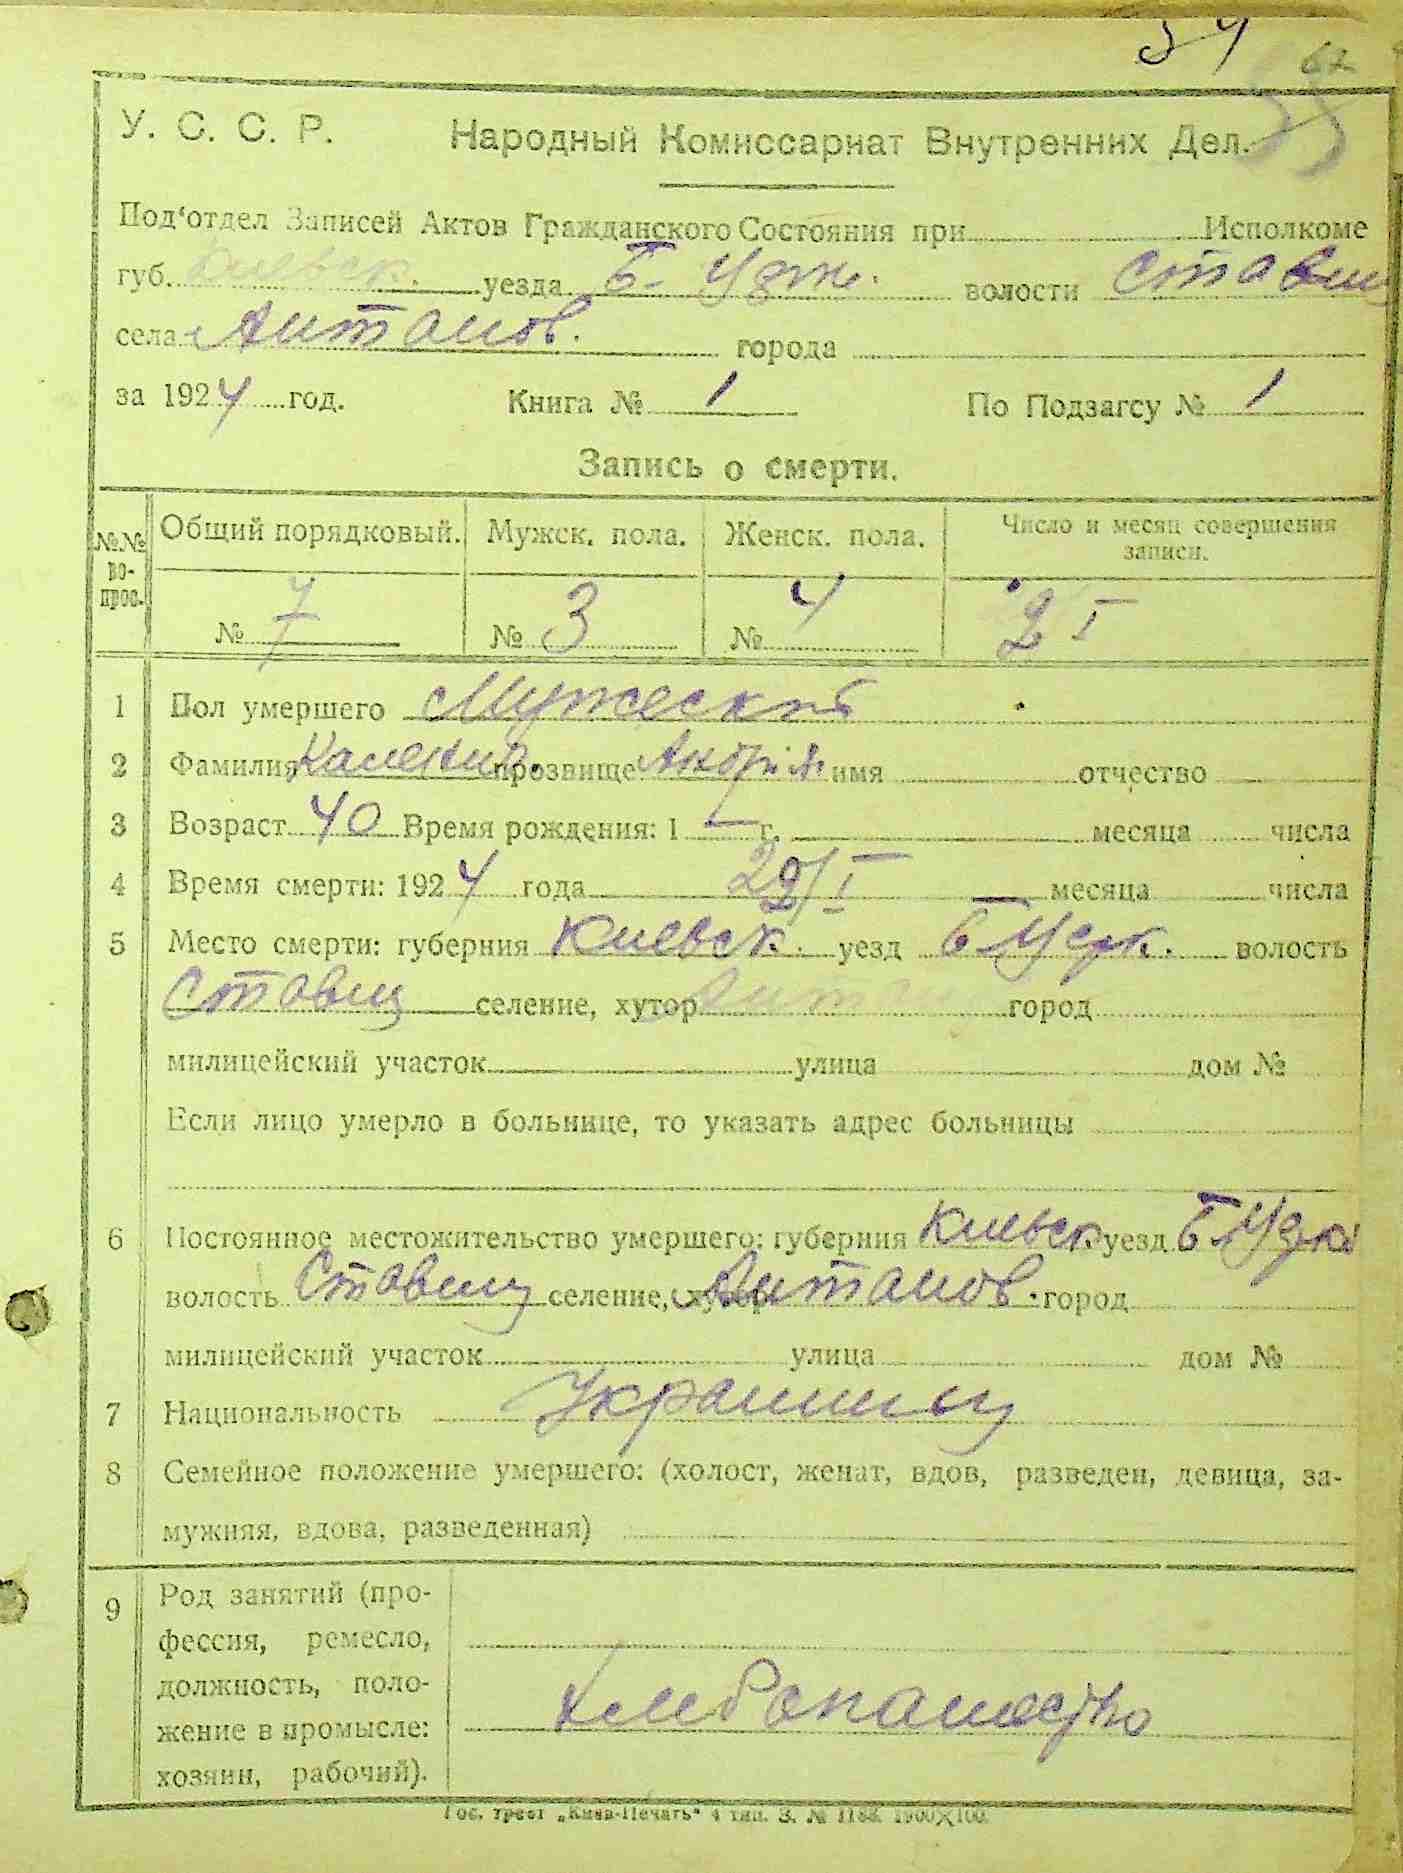 34
67
У. С. С. Р. Народный Комиссариат Внутренних Дел.
Под'отдел Записей Актов Гражданского Состояния при Исполкоме
губ. Киевск. уезда Б- Узк. волости Ставищ
села Антонов. города
за 1924 год. Книга № 1 По Подзагсу № 1
Запись о смерти.
№№ вопрос. Общий порядковый. Мужск. пола. Женск. пола. Число и месяц совершения записи.
№ 7 № 3 № 4 I
1 Пол умершего Мужеский
2 Фамилия, прозвище Андрій имя отчество
3 Возраст 40 Время рождения: 1 — г. месяца числа
4 Время смерти: 1924 года 29/I месяца числа
5 Место смерти: губерния Киевск. уезд волость
Ставищ селение, хутор Антон город
милицейский участок улица дом №
Если лицо умерло в больнице, то указать адрес больницы
6 Постоянное местожительство умершего: губерния Киевск уезд
волость Ставищ селение, хутор Антонов. город
милицейский участок улица дом №
7 Национальность Украинец
8 Семейное положение умершего: (холост, женат, вдов, разведен, девица, за-
мужняя, вдова, разведенная)
9 Род занятий (про-
фессия, ремесло,
должность, поло-
жение в промысле:
хозяин, рабочий).
Хлебопашество
Гос. трест „Киев-Печать" 4 тип. З. №